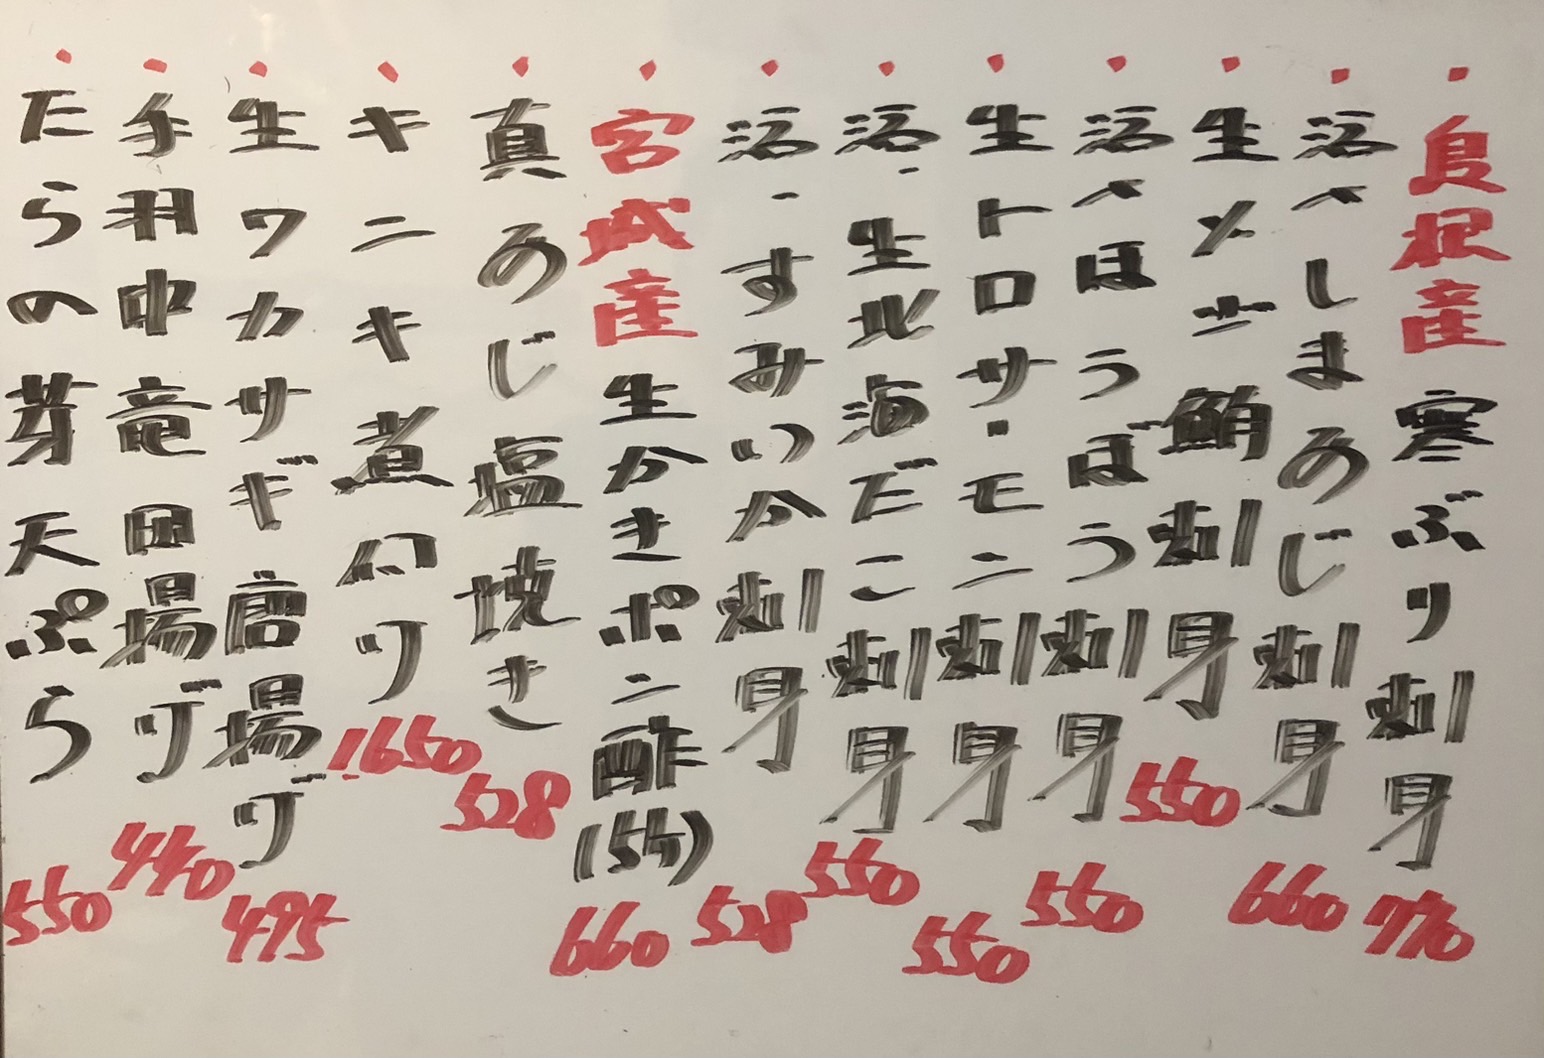 ・島根産寒ぶり刺身 770
・活〆しまあじ刺身 660
・生メジ鮪刺身 550
・活〆ほうぼう刺身 550
・生トロサーモン刺身 550
・活・生北海だこ刺身 550
・活・すみいか刺身 528
・宮城産生かきポン酢(5ケ) 660
・真あじ塩焼き 528
・キンキ煮付け 1,650
・生ワカサギ唐揚げ 495
・手羽中竜田揚げ 440
・たらの芽天ぷら 550